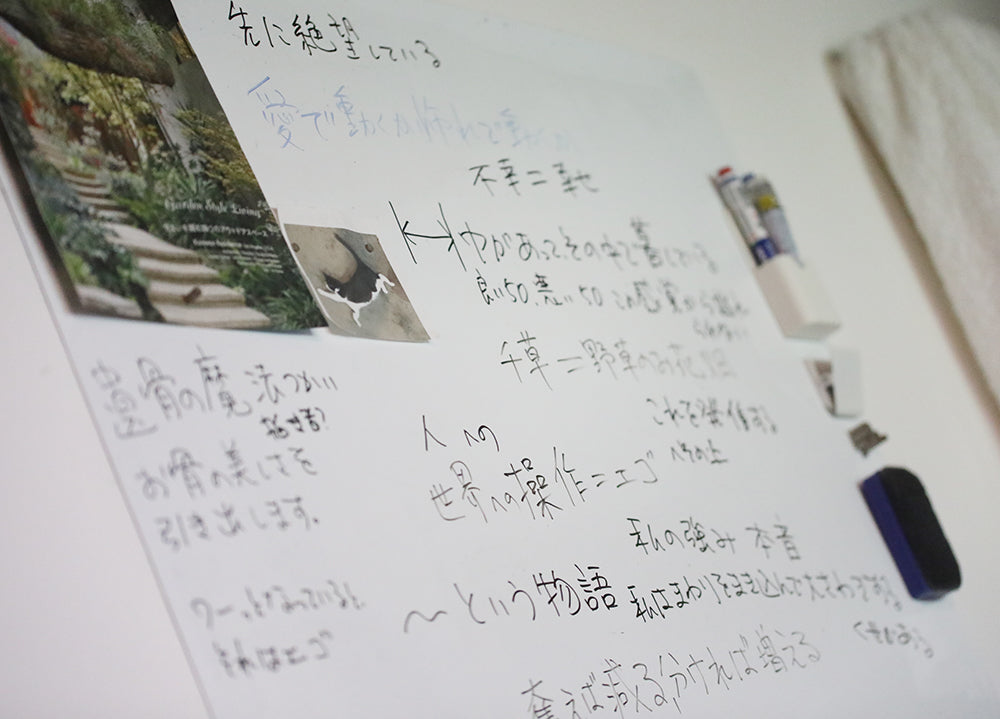 先に絶望している
愛で動くか怖れで動くか
不幸＝幸せ
Garden Style Living
↔ 中があって、その中で暮している
良い50、悪い50 この感覚から
千草＝野草のお花畑
遺骨の魔法つかい
お骨の美しさを
引き出します。
これを操作する
人への
世界への操作＝エゴ
私の強み 本音
〜という物語
私はまわりをまき込んで大さわぎする
ワーッとなっていると、
それはエゴ
くせがある
奪えば減る分ければ増える